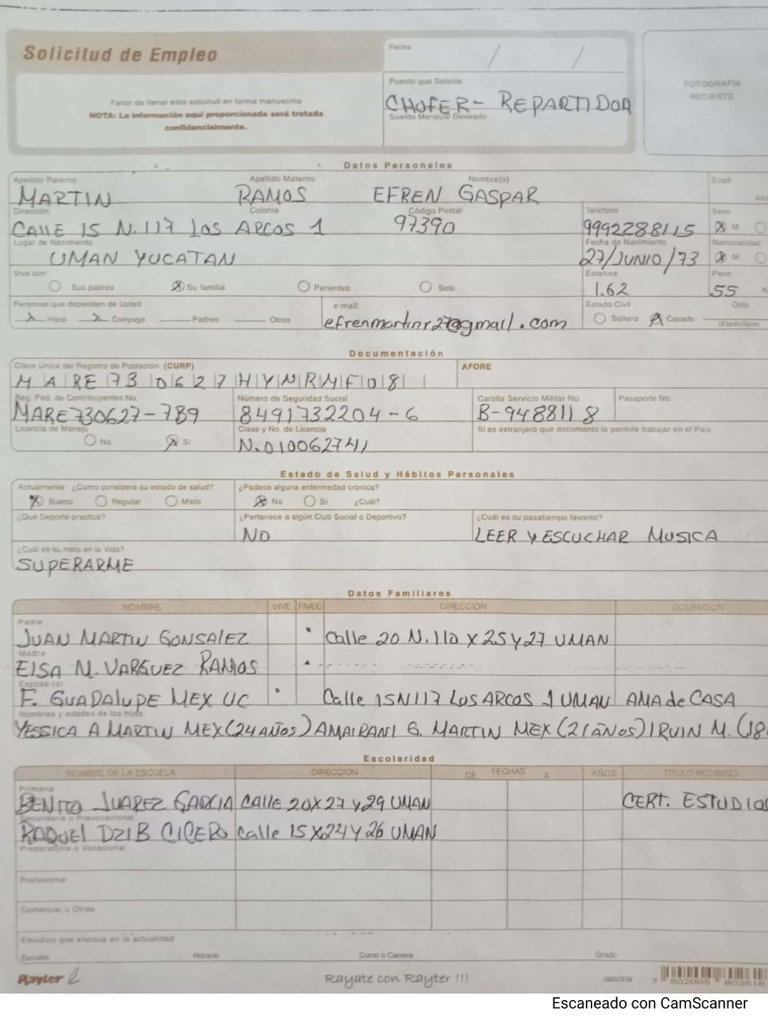 Solicitud de Empleo
Fecha / /
Favor de llenar esta solicitud en forma manuscrita
NOTA: La información aquí proporcionada será tratada
confidencialmente.
Puesto que Solicita
CHOFER- REPARTIDOR
Sueldo Mensual Deseado
FOTOGRAFIA
RECIENTE
Datos Personales
Apellido Paterno Apellido Materno Nombre(s) Edad
MARTIN RAMOS EFREN GASPAR
Dirección Colonia Código Postal Teléfono Sexo
CALLE 15 N.117 LOS ARCOS 1 97390 9992288115 M
Lugar de Nacimiento Fecha de Nacimiento Nacionalidad
UMAN YUCATAN 27/JUNIO/73 M
Vive con: Estatura Peso
Sus padres Su familia Parientes Solo 1.62 55
Personas que dependen de Usted e-mail: Estado Civil Otro
Hijos Conyuge Padres Otros efrenmartinr27@gmail.com Soltero Casado (Especifique)
Documentación
Clave Unica del Registro de Población (CURP) AFORE
MARE730627HYNRMF08
Reg. Fed. de Contribuyentes No. Número de Seguridad Social Cartilla Servicio Militar No. Pasaporte No.
MARE730627-7B9 8491732204-6 B-9488118
Licencia de Manejo Clase y No. de Licencia Si es extranjero que documento le permite trabajar en el País
No Si N.010062741
Estado de Salud y Hábitos Personales
Actualmente ¿Como considera su estado de salud? ¿Padece alguna enfermedad crónica?
Bueno Regular Malo No Si ¿Cuál?
¿Qué Deporte practica? ¿Pertenece a algún Club Social o Deportivo? ¿Cuál es su pasatiempo favorito?
NO LEER Y ESCUCHAR MUSICA
¿Cuál es su meta en la Vida?
SUPERARME
Datos Familiares
NOMBRE VIVE FINADO DIRECCION OCUPACION
Padre
JUAN MARTIN GONSALEZ Calle 20 N.110 X 25 Y 27 UMAN
Madre
ElSA M. VARGUEZ RAMOS
Esposo (a)
F. GUADALUPE MEX UC Calle 15N117 LOS ARCOS 1 UMAN AMA de CASA
Nombres y edades de los hijos
YESSICA A MARTIN MEX (24 AÑOS) AMAIRANI G. MARTIN MEX (21 AÑOS) IRUIN M. (18
Escolaridad
NOMBRE DE LA ESCUELA DIRECCION DE FECHAS A AÑOS TITULO RECIBIDO
Primaria
BENITO JUAREZ GARCIA CALLE 20X27 y 29 UMAN CERT. ESTUDIOS
Secundaria o Prevocacional
RAQUEL DZIB CICERO calle 15 X24 Y 26 UMAN
Preparatoria o Vocacional
Profesional
Comercial u Otras
Estudios que efectúa en la actualidad
Escuela Horario Curso o Carrera Grado
Rayter Rayate con Rayter !!!
Escaneado con CamScanner